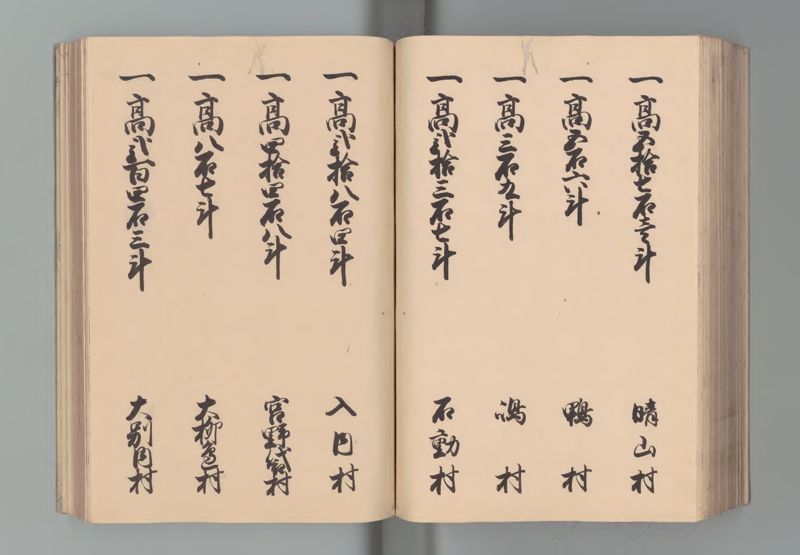 一高五拾七石壱斗 晴山村
一高五石六斗 鴨村
一高三石九斗 潟村
一高弐拾三石七斗 石動村
一高弐拾八石四斗 入内村
一高四拾四石八斗 宮野代新村
一高八石七斗 大柳邑村
一高弐百四石三斗 大別内村